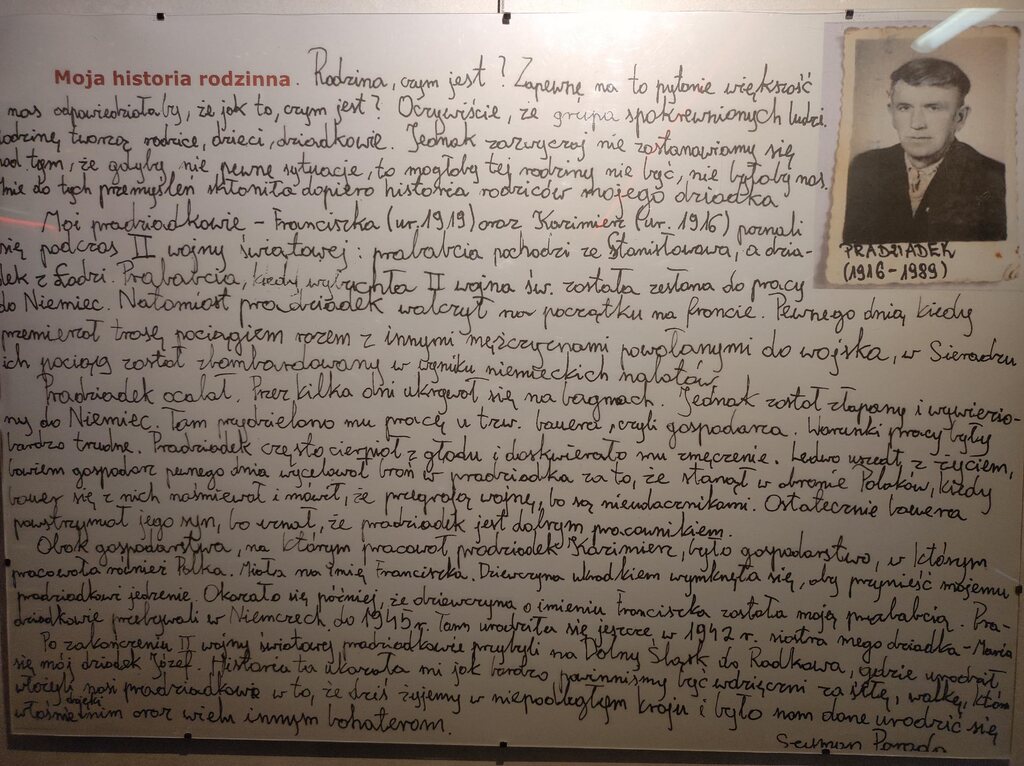 Moja historia rodzinna. Rodzina, czym jest? Zapewne na to pytanie większość
nas odpowiedziałaby, że jak to, czym jest? Oczywiście, że grupa spokrewnionych ludzi.
rodzinę tworzą rodzice, dzieci, dziadkowie. Jednak zazwyczaj nie zastanawiamy się
nad tym, że gdyby nie pewne sytuacje, to mogłoby tej rodziny nie być, nie byłoby nas.
Mnie do tych przemyśleń skłoniła dopiero historia rodziców mojego dziadka
Moi pradziadkowie - Franciszka (ur. 1919) oraz Kazimierz (ur. 1916) poznali
się podczas II wojny światowej: prababcia pochodzi ze Stanisławowa, a dzia-
dek z Łodzi. Prababcia, kiedy wybuchła II wojna św. została zesłana do pracy
do Niemiec. Natomiast pradziadek walczył na początku na froncie. Pewnego dnia, kiedy
przemierzał trasę pociągiem razem z innymi mężczyznami powołanymi do wojska, w Sieradzu
ich pociąg został zbombardowany w wyniku niemieckich nalotów.
Pradziadek ocalał. Przez kilka dni ukrywał się na bagnach. Jednak został złapany i wywiezio-
ny do Niemiec. Tam przydzielono mu pracę u tzw. bauera, czyli gospodarza. Warunki pracy były
bardzo trudne. Pradziadek często cierpiał z głodu i doskwierało mu zmęczenie. Ledwo uszedł z życiem,
bowiem gospodarz pewnego dnia wycelował broń w pradziadka za to, że stanął w obronie Polaków, kiedy
bauer się z nich naśmiewał i mówił, że przegrają wojnę, bo są nieudacznikami. Ostatecznie bauera
powstrzymał jego syn, bo uznał, że pradziadek jest dobrym pracownikiem.
Obok gospodarstwa, na którym pracował pradziadek Kazimierz, było gospodarstwo, w którym
pracowała również Polka. Miała na imię Franciszka. Dziewczyna ukradkiem wymknęła się, aby przynieść mojemu
pradziadkowi jedzenie. Okazało się później, że dziewczyna o imieniu Franciszka została moją prababcią. Pra-
dziadkowie przebywali w Niemczech do 1945 r. Tam urodziła się jeszcze w 1942 r. siostra mego dziadka - Maria
Po zakończeniu II wojny światowej pradziadkowie przybyli na Dolny Śląsk do Radkowa, gdzie urodził
się mój dziadek Józef. Historia ta ukazała mi jak bardzo powinniśmy być wdzięczni za siłę, walkę, którą
włożyli nasi pradziadkowie w to, że dziś żyjemy w niepodległym kraju i było nam dane urodzić się
właśnie dzięki nim oraz wielu innym bohaterom.
PRADZIADEK
(1916-1989)